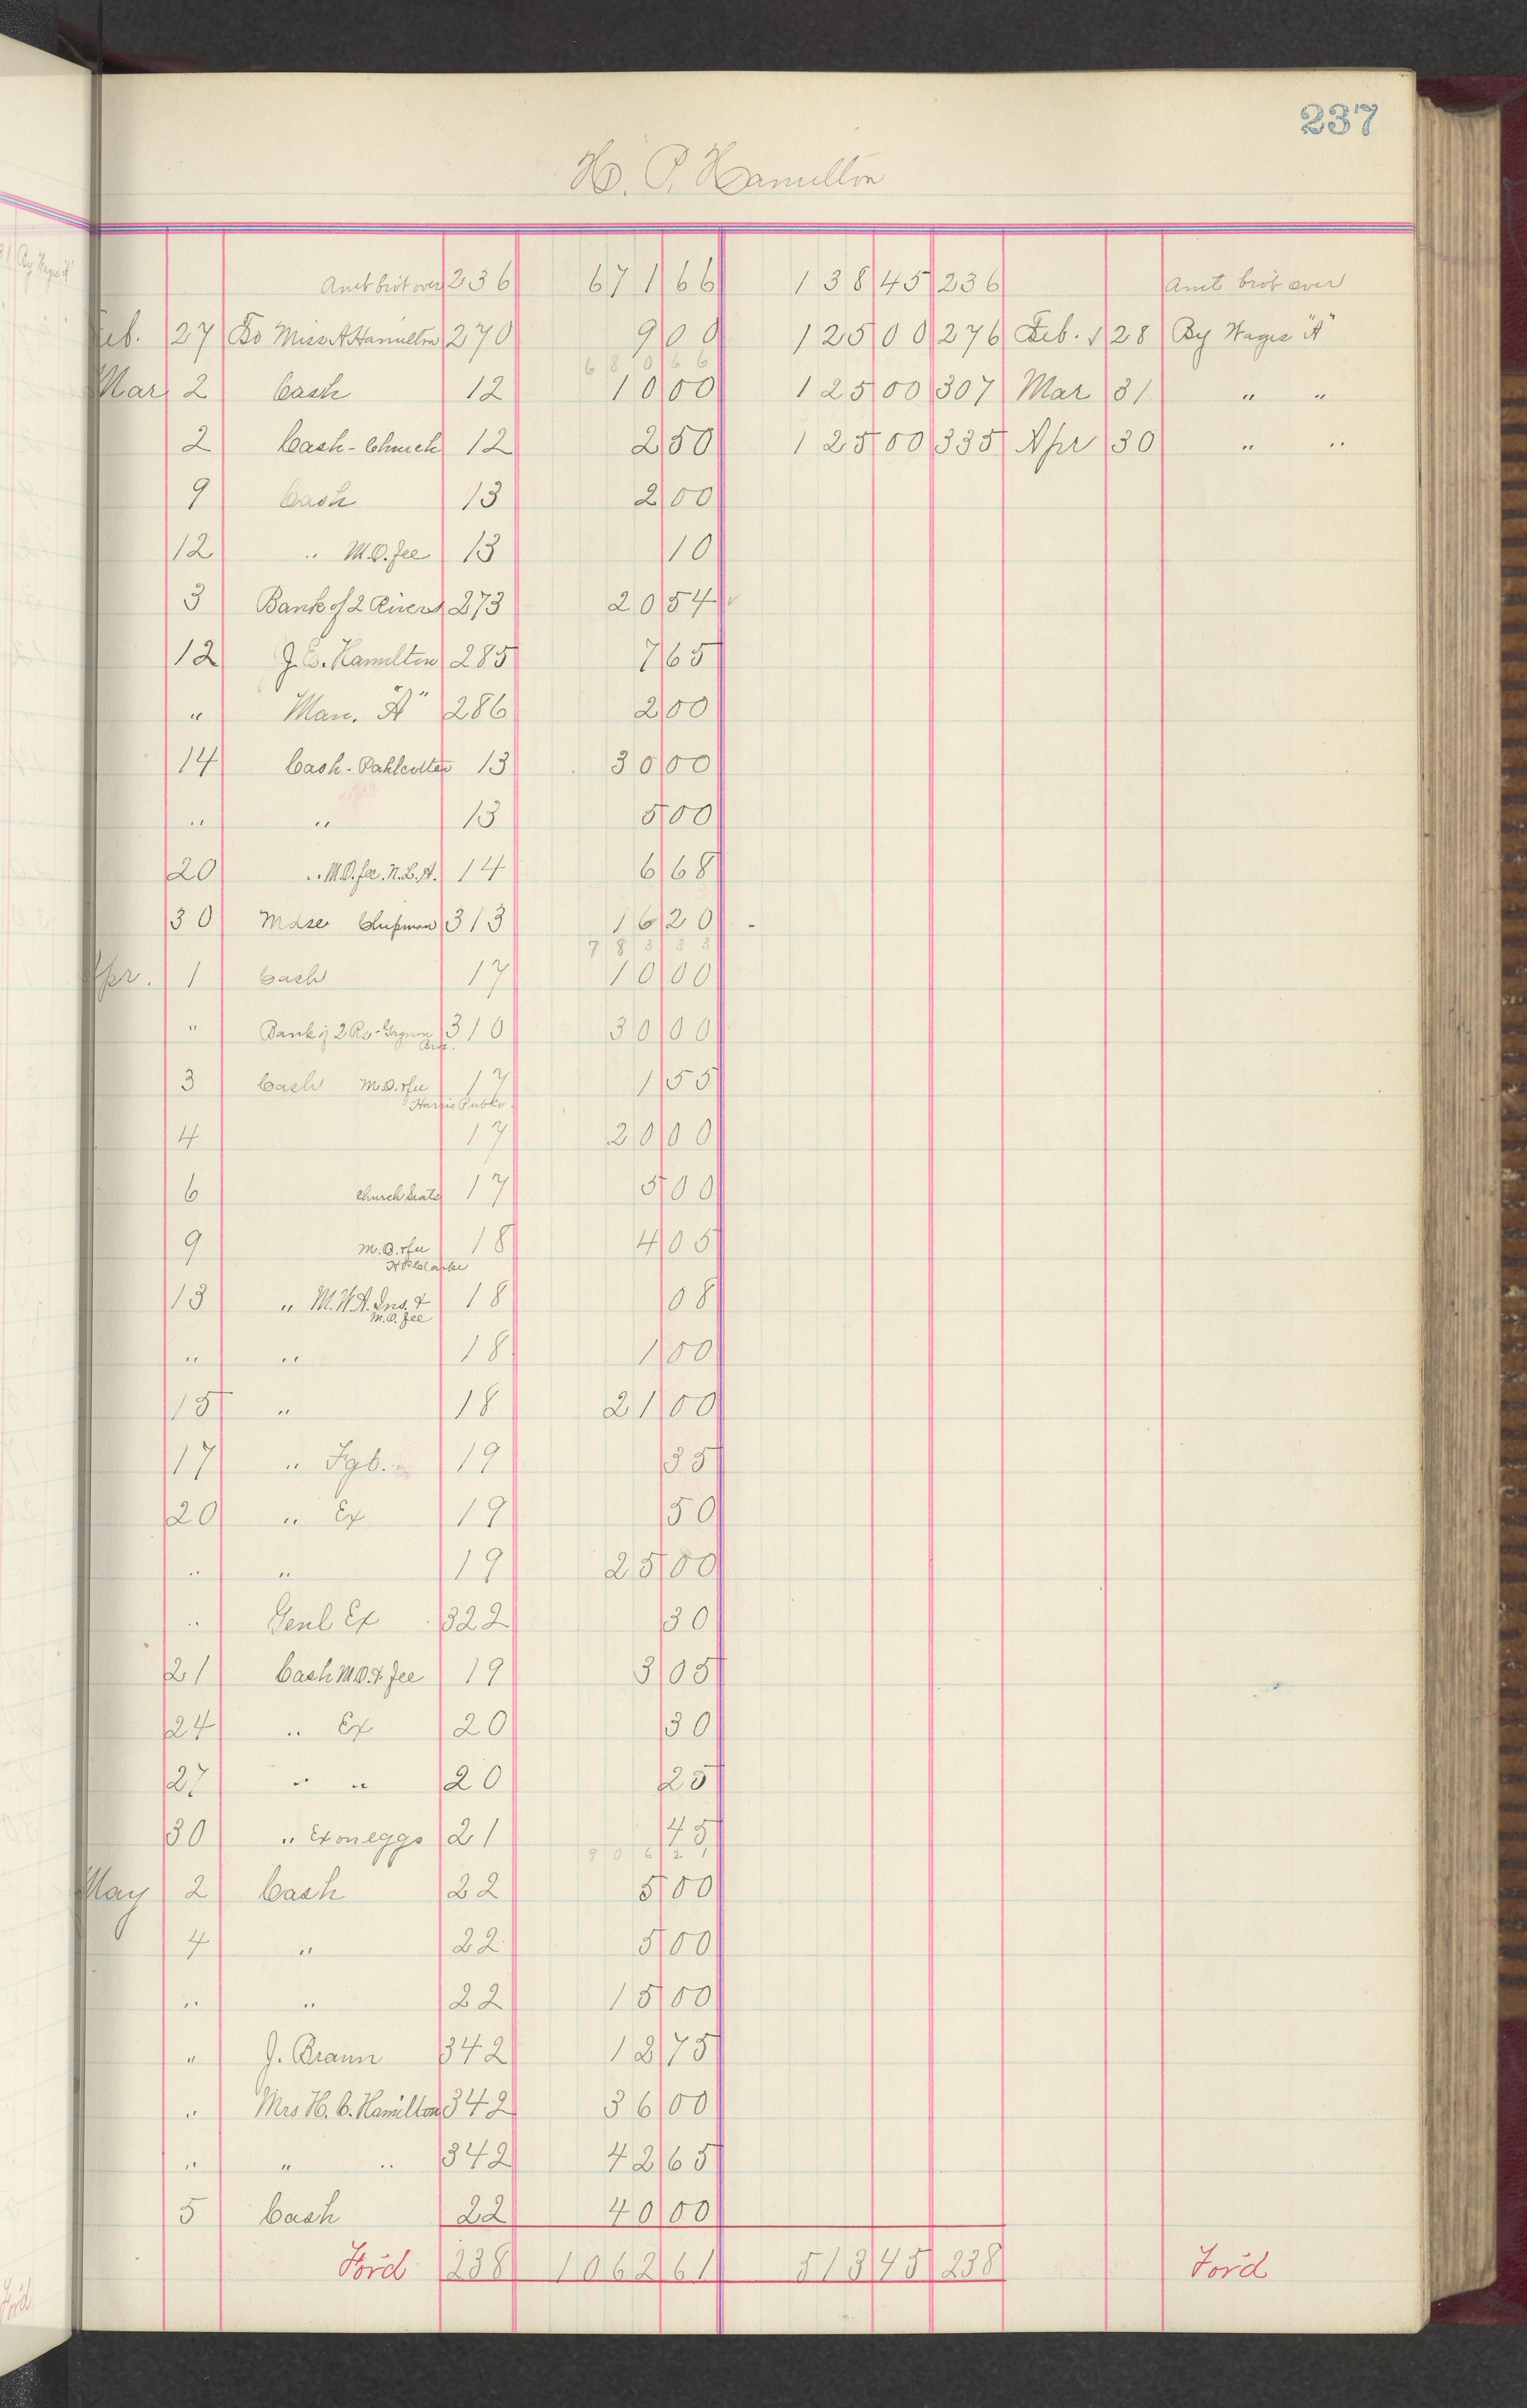 237
H. P. Hamilton
Amt brot over 236 671 66 138 45 236 Amt brot over
Feb. 27 To Miss A Hamilton 270 9 00 125 00 276 Feb. 28 By Wages "A"
680 66
Mar 2 Cash 12 10 00 125 00 307 Mar 31 " "
2 Cash - Church 12 2 50 125 00 335 Apr 30 " "
9 Cash 13 2 00
12 " M.O. fee 13 10
3 Bank of 2 Rivers 273 20 54 ✓
12 J. E. Hamilton 285 7 65
" Man. "A" 286 2 00
14 Cash - 13 30 00
" " 13 5 00
20 " M.O. fee. N.L.A. 14 6 68
30 Mdse Chipman 313 16 20
783 33
Apr. 1 Cash 17 10 00
" Bank of 2 Rs - Gagnon Bros. 310 30 00
3 Cash M.O. & fee 17 1 55
Harris Pub Co.
4 17 20 00
6 Church Seats 17 5 00
9 M.O. & fee 18 4 05
13 " M.W.A. Ins. & 18 08
M.O. fee
" " 18 1 00
15 " 18 21 00
17 " Fgt. 19 35
20 " Ex 19 50
" " 19 25 00
" Genl Ex 322 30
21 Cash M.O. & fee 19 3 05
24 " Ex 20 30
27 " " 20 25
30 " Ex on eggs 21 45
906 21
May 2 Cash 22 5 00
4 " 22 5 00
" " 22 15 00
" J. Braun 342 12 75
" Mrs H. C. Hamilton 342 36 00
" " " 342 42 65
5 Cash 22 40 00
Ford 238 1062 61 513 45 238 Ford